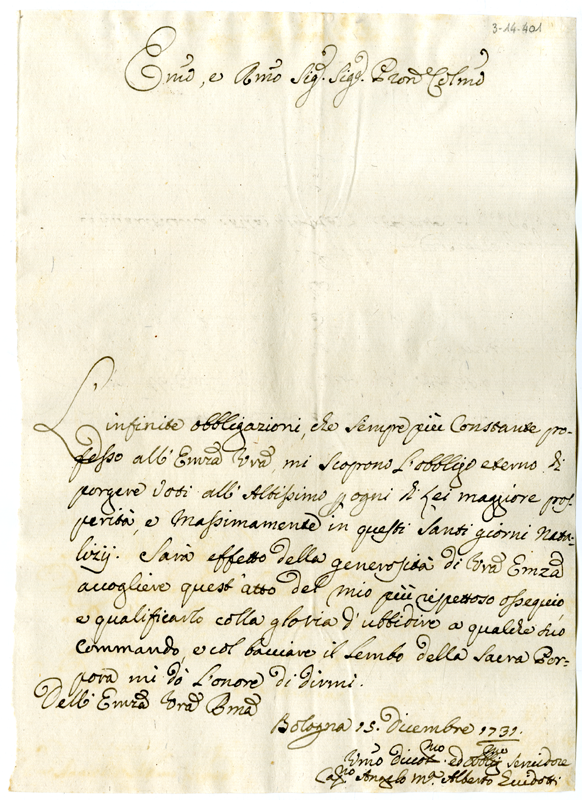 3-14-401
Emo, e Rmo Sig.r Sig.r Prone Colmo
L'infinite obbligazioni, che sempre più Constante pro-
fesso all' Emza Vra, mi scoprono l'obbligo eterno di
porgere Voti all' Altissimo p ogni di Lei maggiore pros-
perità, e Massimamente in questi Santi giorni Nata-
lizij. Sarà effetto della generosità di Vra Emza
accogliere quest'atto del mio più rispettoso ossequio
e qualificarlo colla gloria d'ubbidire a qualche suo
Commando, e col bacciare il lembo della Sacra Por-
pora mi dò l'onore di dirmi.
Dell' Emza Vra Rma
Bologna 15. Dicembre 1731.
Vmo divotmo ed obblig servidore
Angelo Ma Alberto Guidotti